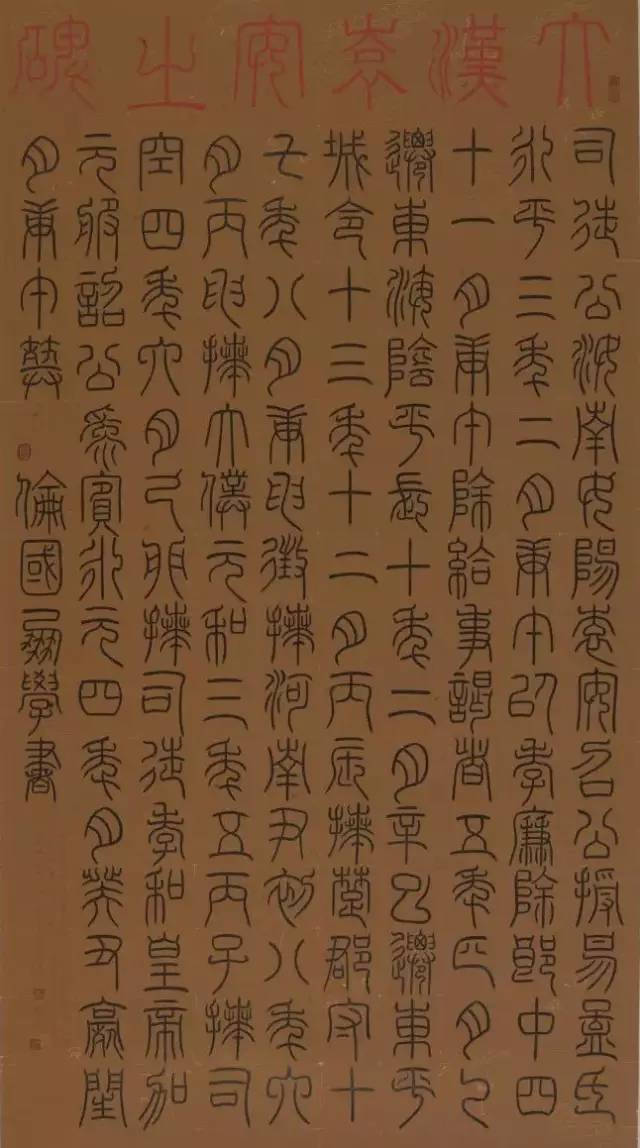 大漢袁安之碑
司徒公汝南女陽袁安召公授易孟氏
永平三年二月庚午以孝廉除郎中四
十一月庚午除給事謁者五年正月乙
遷東海陰平長十年二月辛巳遷東平
城令十三年十二月丙辰拜楚郡守十
七年八月庚申徵拜河南尹初八年六
月丙申拜大僕元和三年五丙子拜司
空四年六月己卯拜司徒孝和皇帝加
元服詔公為賓永元四年月癸丑薨閏
月庚午葬 倫國學書